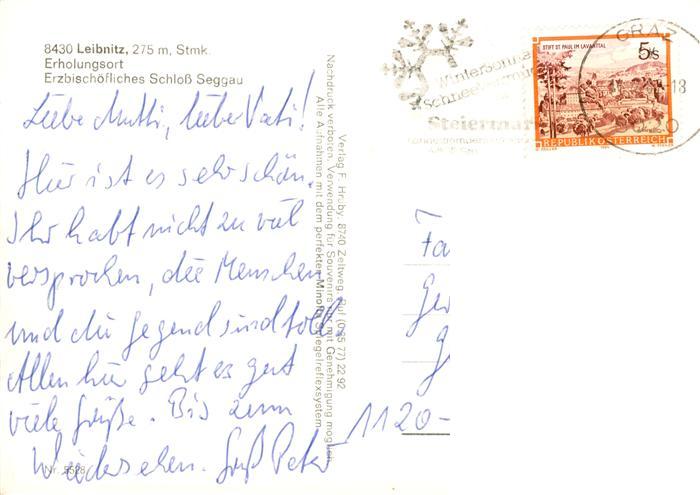 8430 Leibnitz, 275 m, Stmk.
Erholungsort
Erzbischöfliches Schloß Seggau
Liebe Mutti, lieber Vati!
Hier ist es sehr schön.
Ihr habt nicht zu viel
versprochen, die Menschen
und die Gegend sind toll.
Allen hier geht es gut
viele Grüße. Bis zum
Wiedersehen. Gruß Peter
Nr. 5528
Verlag F. Hruby, 8740 Zeltweg, Ruf (0 35 77) 22 92
Nachdruck verboten, Verwendung für Souvenirs nur mit Genehmigung möglich
Alle Aufnahmen mit dem perfekten Minolta Spiegelreflexsystem
Wintersonne
Schneebergmü
Steiermar
GRAZ
18
STIFT ST. PAUL IM LAVANTTAL
5 S
REPUBLIK ÖSTERREICH
Fa
Ger
G
1120-